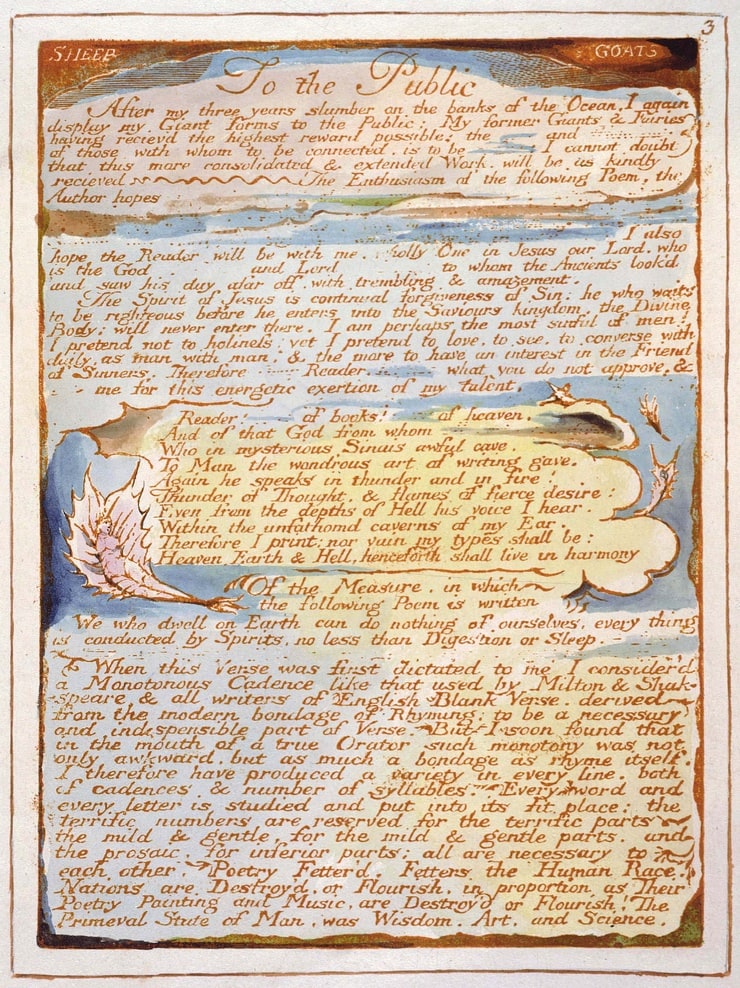 3
SHEEP GOATS
To the Public
After my three years slumber on the banks of the Ocean, I again
display my Giant forms to the Public: My former Giants & Fairies
having reciev'd the highest reward possible: the and
of those with whom to be connected, is to be I cannot doubt
that this more consolidated & extended Work, will be as kindly
recieved The Enthusiasm of the following Poem, the
Author hopes
I also
hope the Reader will be with me, wholly One in Jesus our Lord, who
is the God and Lord to whom the Ancients look'd
and saw his day afar off, with trembling & amazement.
The Spirit of Jesus is continual forgiveness of Sin: he who waits
to be righteous before he enters into the Saviours kingdom, the Divine
Body; will never enter there. I am perhaps the most sinful of men!
I pretend not to holiness: yet I pretend to love, to see, to converse with
daily, as man with man, & the more to have an interest in the Friend
of Sinners. Therefore Reader, what you do not approve, &
me for this energetic exertion of my talent.
Reader! of books! of heaven,
And of that God from whom
Who in mysterious Sinais awful cave,
To Man the wondrous art of writing gave,
Again he speaks in thunder and in fire!
Thunder of Thought, & flames of fierce desire:
Even from the depths of Hell his voice I hear,
Within the unfathomd caverns of my Ear.
Therefore I print; nor vain my types shall be:
Heaven, Earth & Hell, henceforth shall live in harmony
Of the Measure, in which
the following Poem is written
We who dwell on Earth can do nothing of ourselves, every thing
is conducted by Spirits, no less than Digestion or Sleep.
When this Verse was first dictated to me I consider'd
a Monotonous Cadence like that used by Milton & Shak-
speare & all writers of English Blank Verse, derived
from the modern bondage of Rhyming; to be a necessary
and indispensible part of Verse. But I soon found that
in the mouth of a true Orator such monotony was not
only awkward, but as much a bondage as rhyme itself.
I therefore have produced a variety in every line, both
of cadences & number of syllables. Every word and
every letter is studied and put into its fit place: the
terrific numbers are reserved for the terrific parts
the mild & gentle, for the mild & gentle parts, and
the prosaic, for inferior parts: all are necessary to
each other. Poetry Fetter'd, Fetters the Human Race!
Nations are Destroy'd, or Flourish, in proportion as Their
Poetry Painting and Music, are Destroy'd or Flourish! The
Primeval State of Man, was Wisdom, Art, and Science.